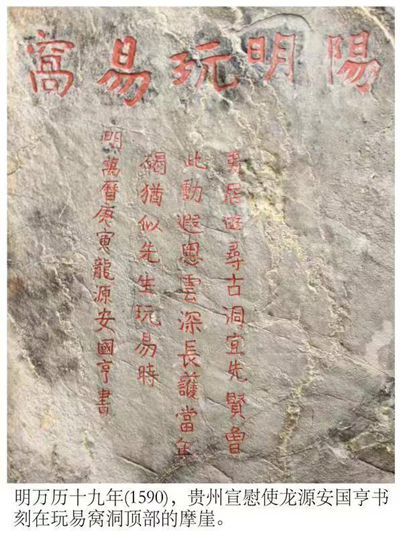 陽明玩易窩
夷居遊尋古洞宜先賢曾
此動遐思雲深長護當年
碣猶似先生玩易時
明萬曆庚寅龍源安國亨書
明万历十九年(1590)，贵州宣慰使龙源安国亨书
刻在玩易窝洞顶部的摩崖。